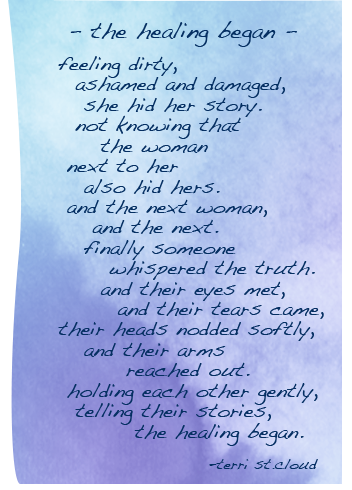 - the healing began -
feeling dirty,
ashamed and damaged,
she hid her story.
not knowing that
the woman
next to her
also hid hers.
and the next woman,
and the next.
finally someone
whispered the truth.
and their eyes met,
and their tears came,
their heads nodded softly,
and their arms
reached out.
holding each other gently,
telling their stories,
the healing began.
-terri st.cloud